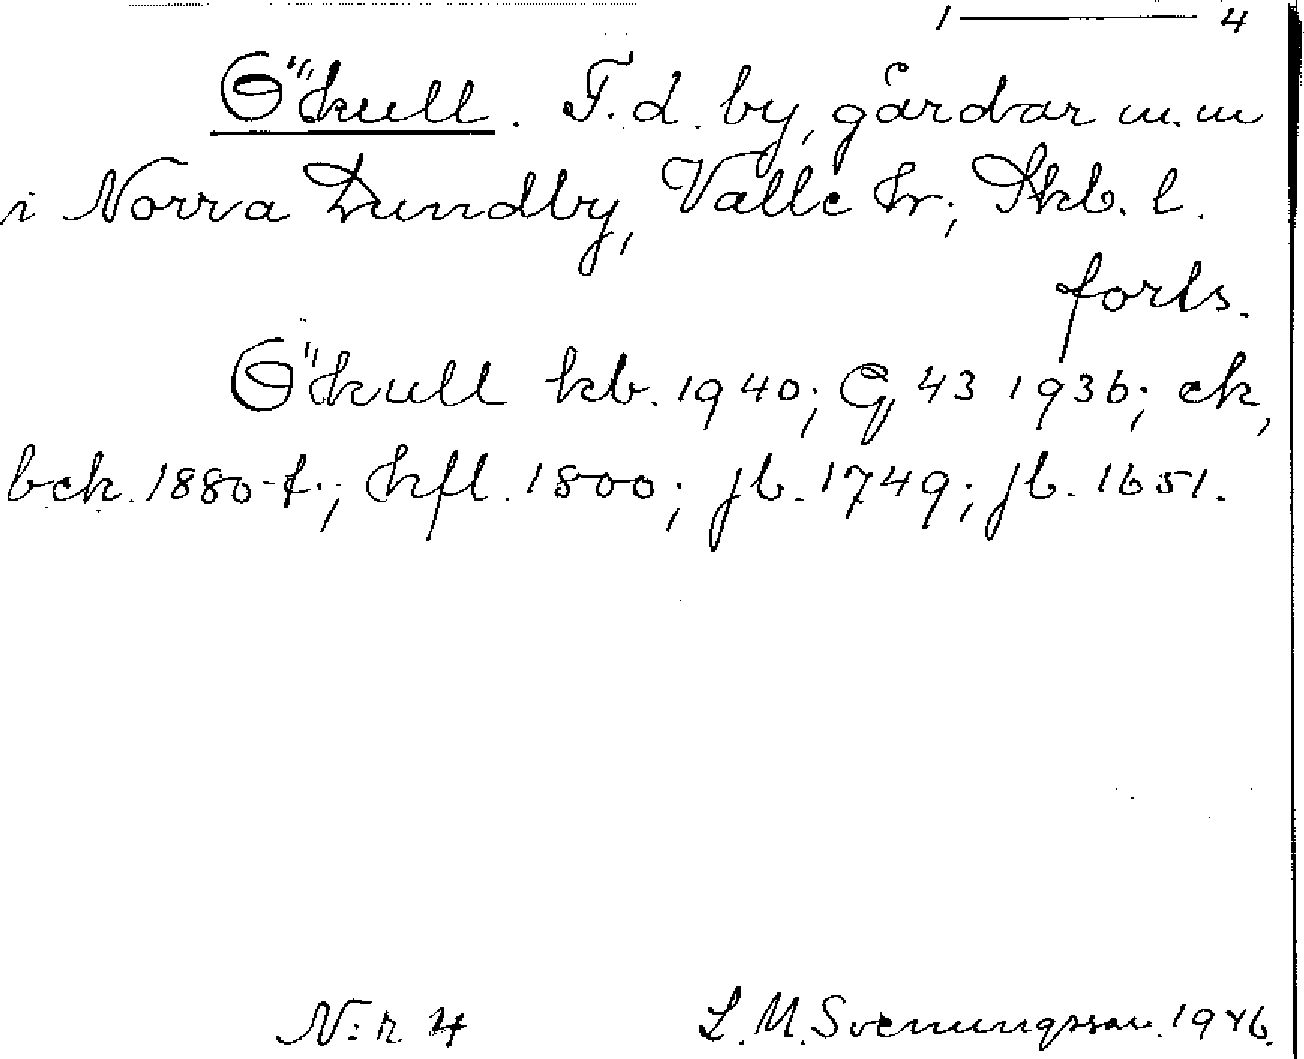 1 — 4
Ökull. F.d. by, gårdar m.m
i Norra Lundby, Valle hr; Skb. l.
forts.
Ökull kb. 1940; G, 43 1936; ek,
bek. 1880-t.; hfl. 1800; jb. 1749; jb. 1651.
N:r. 4 L. M. Svenungsson. 1946.